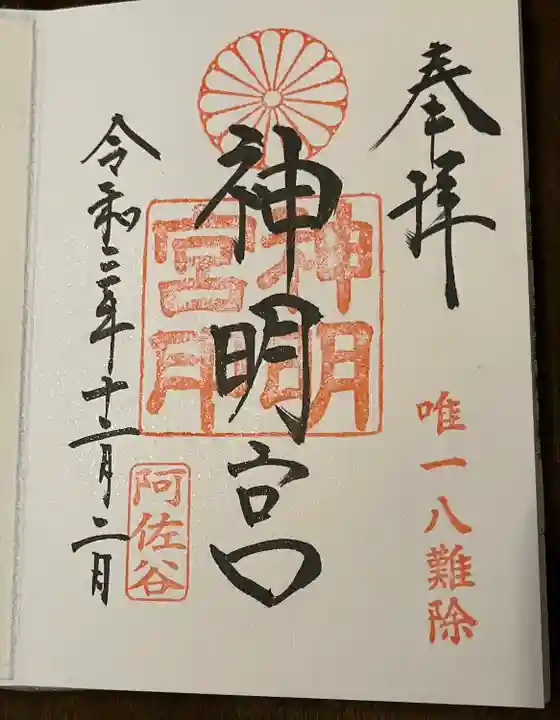 奉拝
唯一八難除
神明宮
神明
宮
令和三年十二月二日
阿佐谷